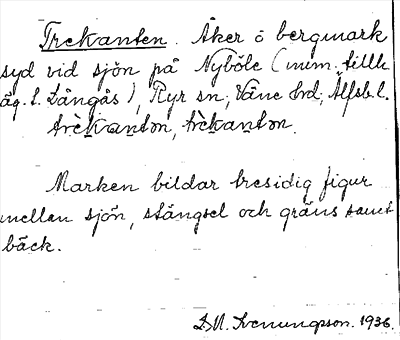 Trekanten. Åker o bergmark
syd vid sjön på Nyböle (num. tillh.
äg. t. Långås), Ryr sn, Väne hd, Älfsb. l.
trèkantən, trèkantən.
Marken bildar tresidig figur
mellan sjön, stängsel och gräns samt
bäck.
D.N. Svenungsson. 1936.